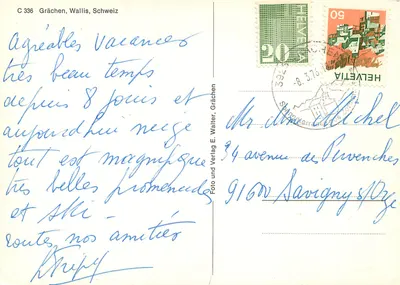 C 336 Grächen, Wallis, Schweiz
Agréables vacances
très beau temps
depuis 8 jours et
aujourd'hui neige
tout est magnifique
très belles promenades
et ski -
toutes nos amitiés
Foto und Verlag E. Walter, Grächen
20
HELVETIA
50
HELVETIA
Mr Mme Michel
94 avenue des Pervenches
91600 Savigny s/Orge